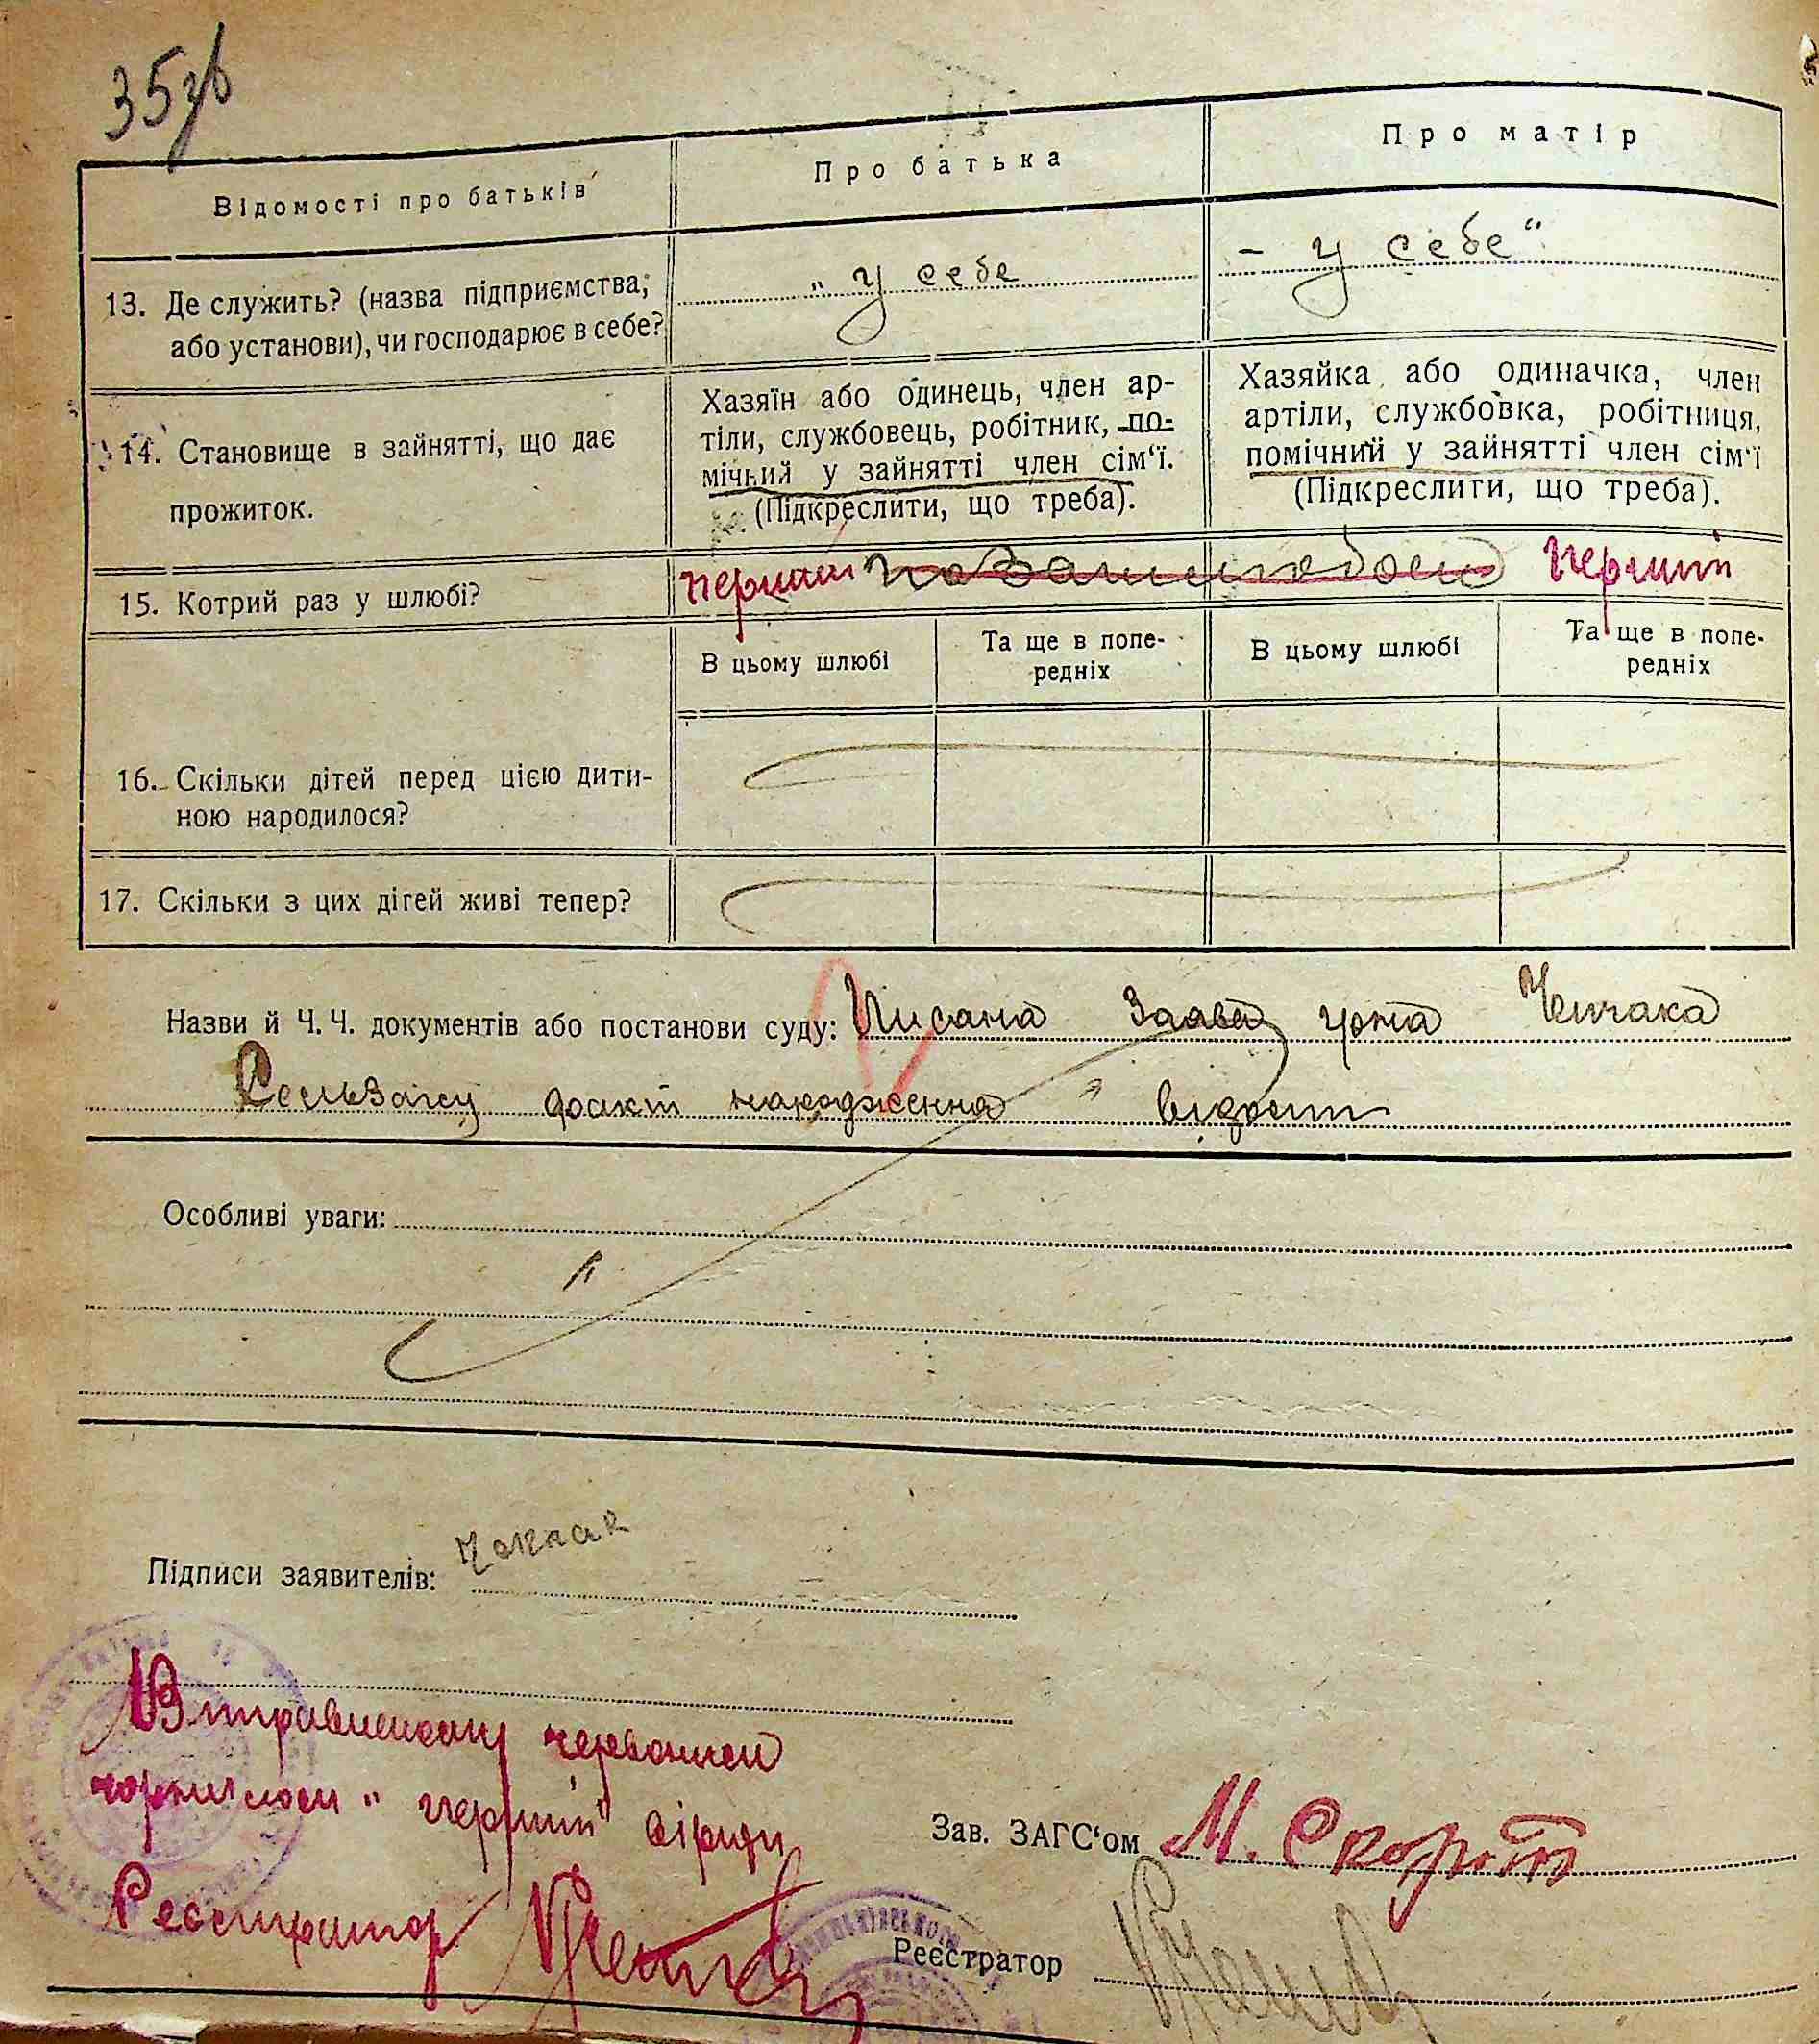 35зв
Відомості про батьків
Про батька
Про матір
13. Де служить? (назва підприємства,
або установи), чи господарює в себе?
„ у себе
– у себе “
14. Становище в зайнятті, що дає
прожиток.
Хазяїн або одинець, член ар-
тіли, службовець, робітник, по-
мічний у зайнятті член сім‘ї.
(Підкреслити, що треба).
Хазяйка або одиначка, член
артіли, службовка, робітниця,
помічний у зайнятті член сім‘ї
(Підкреслити, що треба).
15. Котрий раз у шлюбі?
перший
перший
В цьому шлюбі
Та ще в попе-
редніх
В цьому шлюбі
Та ще в попе-
редніх
16. Скільки дітей перед цією дити-
ною народилося?
17. Скільки з цих дітей живі тепер?
Назви й Ч. Ч. документів або постанови суду: Писана
факт народження
Особливі уваги:
Підписи заявителів:
червоним
чорнилом „ перший “
Реєстратор
Зав. ЗАГС‘ом М.
Реєстратор